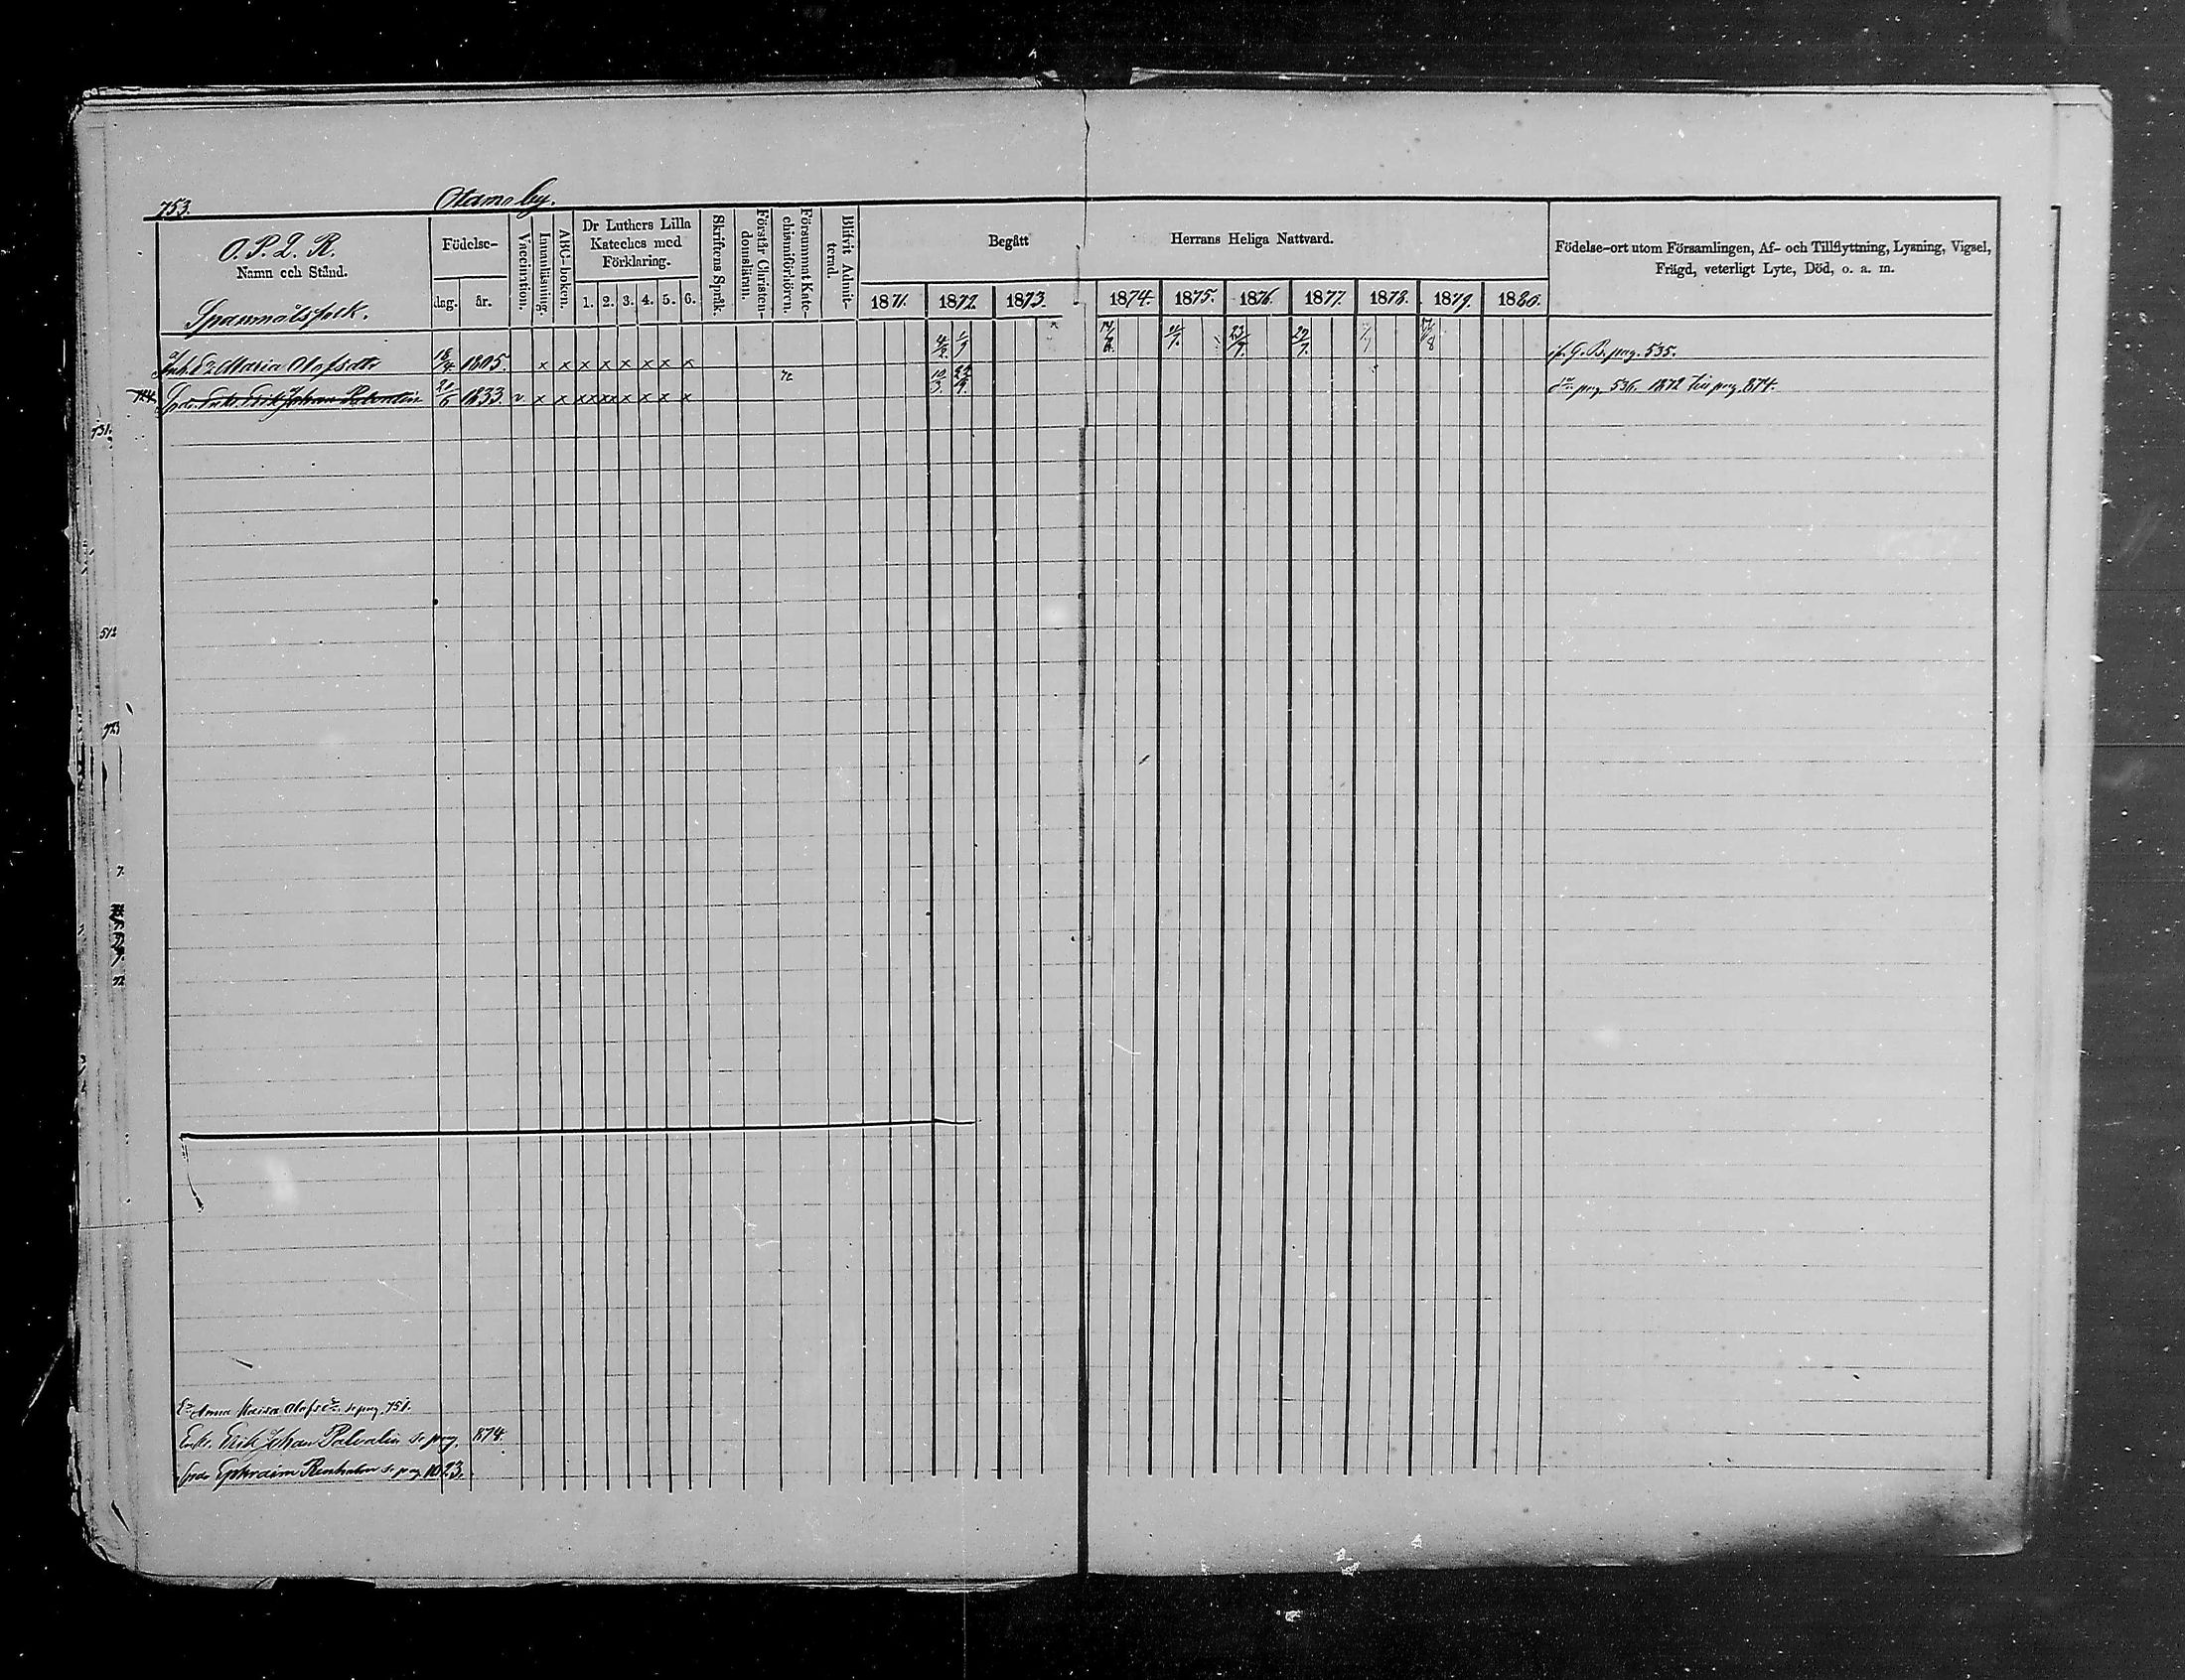 753.
by.
O. P. L. R.
Namn och Stånd.
Födelse-
dag. år.
Vaccination.
Innanläsning.
ABC-boken.
Dr Luthers Lilla
Kateches med
Förklaring.
1. 2. 3. 4. 5. 6.
Skriftens Språk.
Förstår Christen-
domsläran.
Försummat Kate-
chismiförhören.
Blifvit Admit-
terad.
Begått Herrans Heliga Nattvard.
1871. 1872. 1873. 1874. 1875. 1876. 1877. 1878. 1879. 1880.
Födelse-ort utom Församlingen, Af- och Tillflyttning, Lysning, Vigsel,
Frägd, veterligt Lyte, Död, o. a. m.
Maria Olofsdr 18/4 1805. x x x x x x x x 1/9 14/6 23/9. 29/7. 17/8 G. B. pag. 535.
Erik Johan Palvalin 20/6 1833. v. x x xx xx x x x x 10/3. 22/9. pag. 536. 1872 till pag. 874.
731.
512
723
7.
72
Anna Kaisa Olofsdr. se pag. 751.
Enkl. Erik Johan Palvalin se pag. 874.
Ephraim Renholm se pag. 1023.